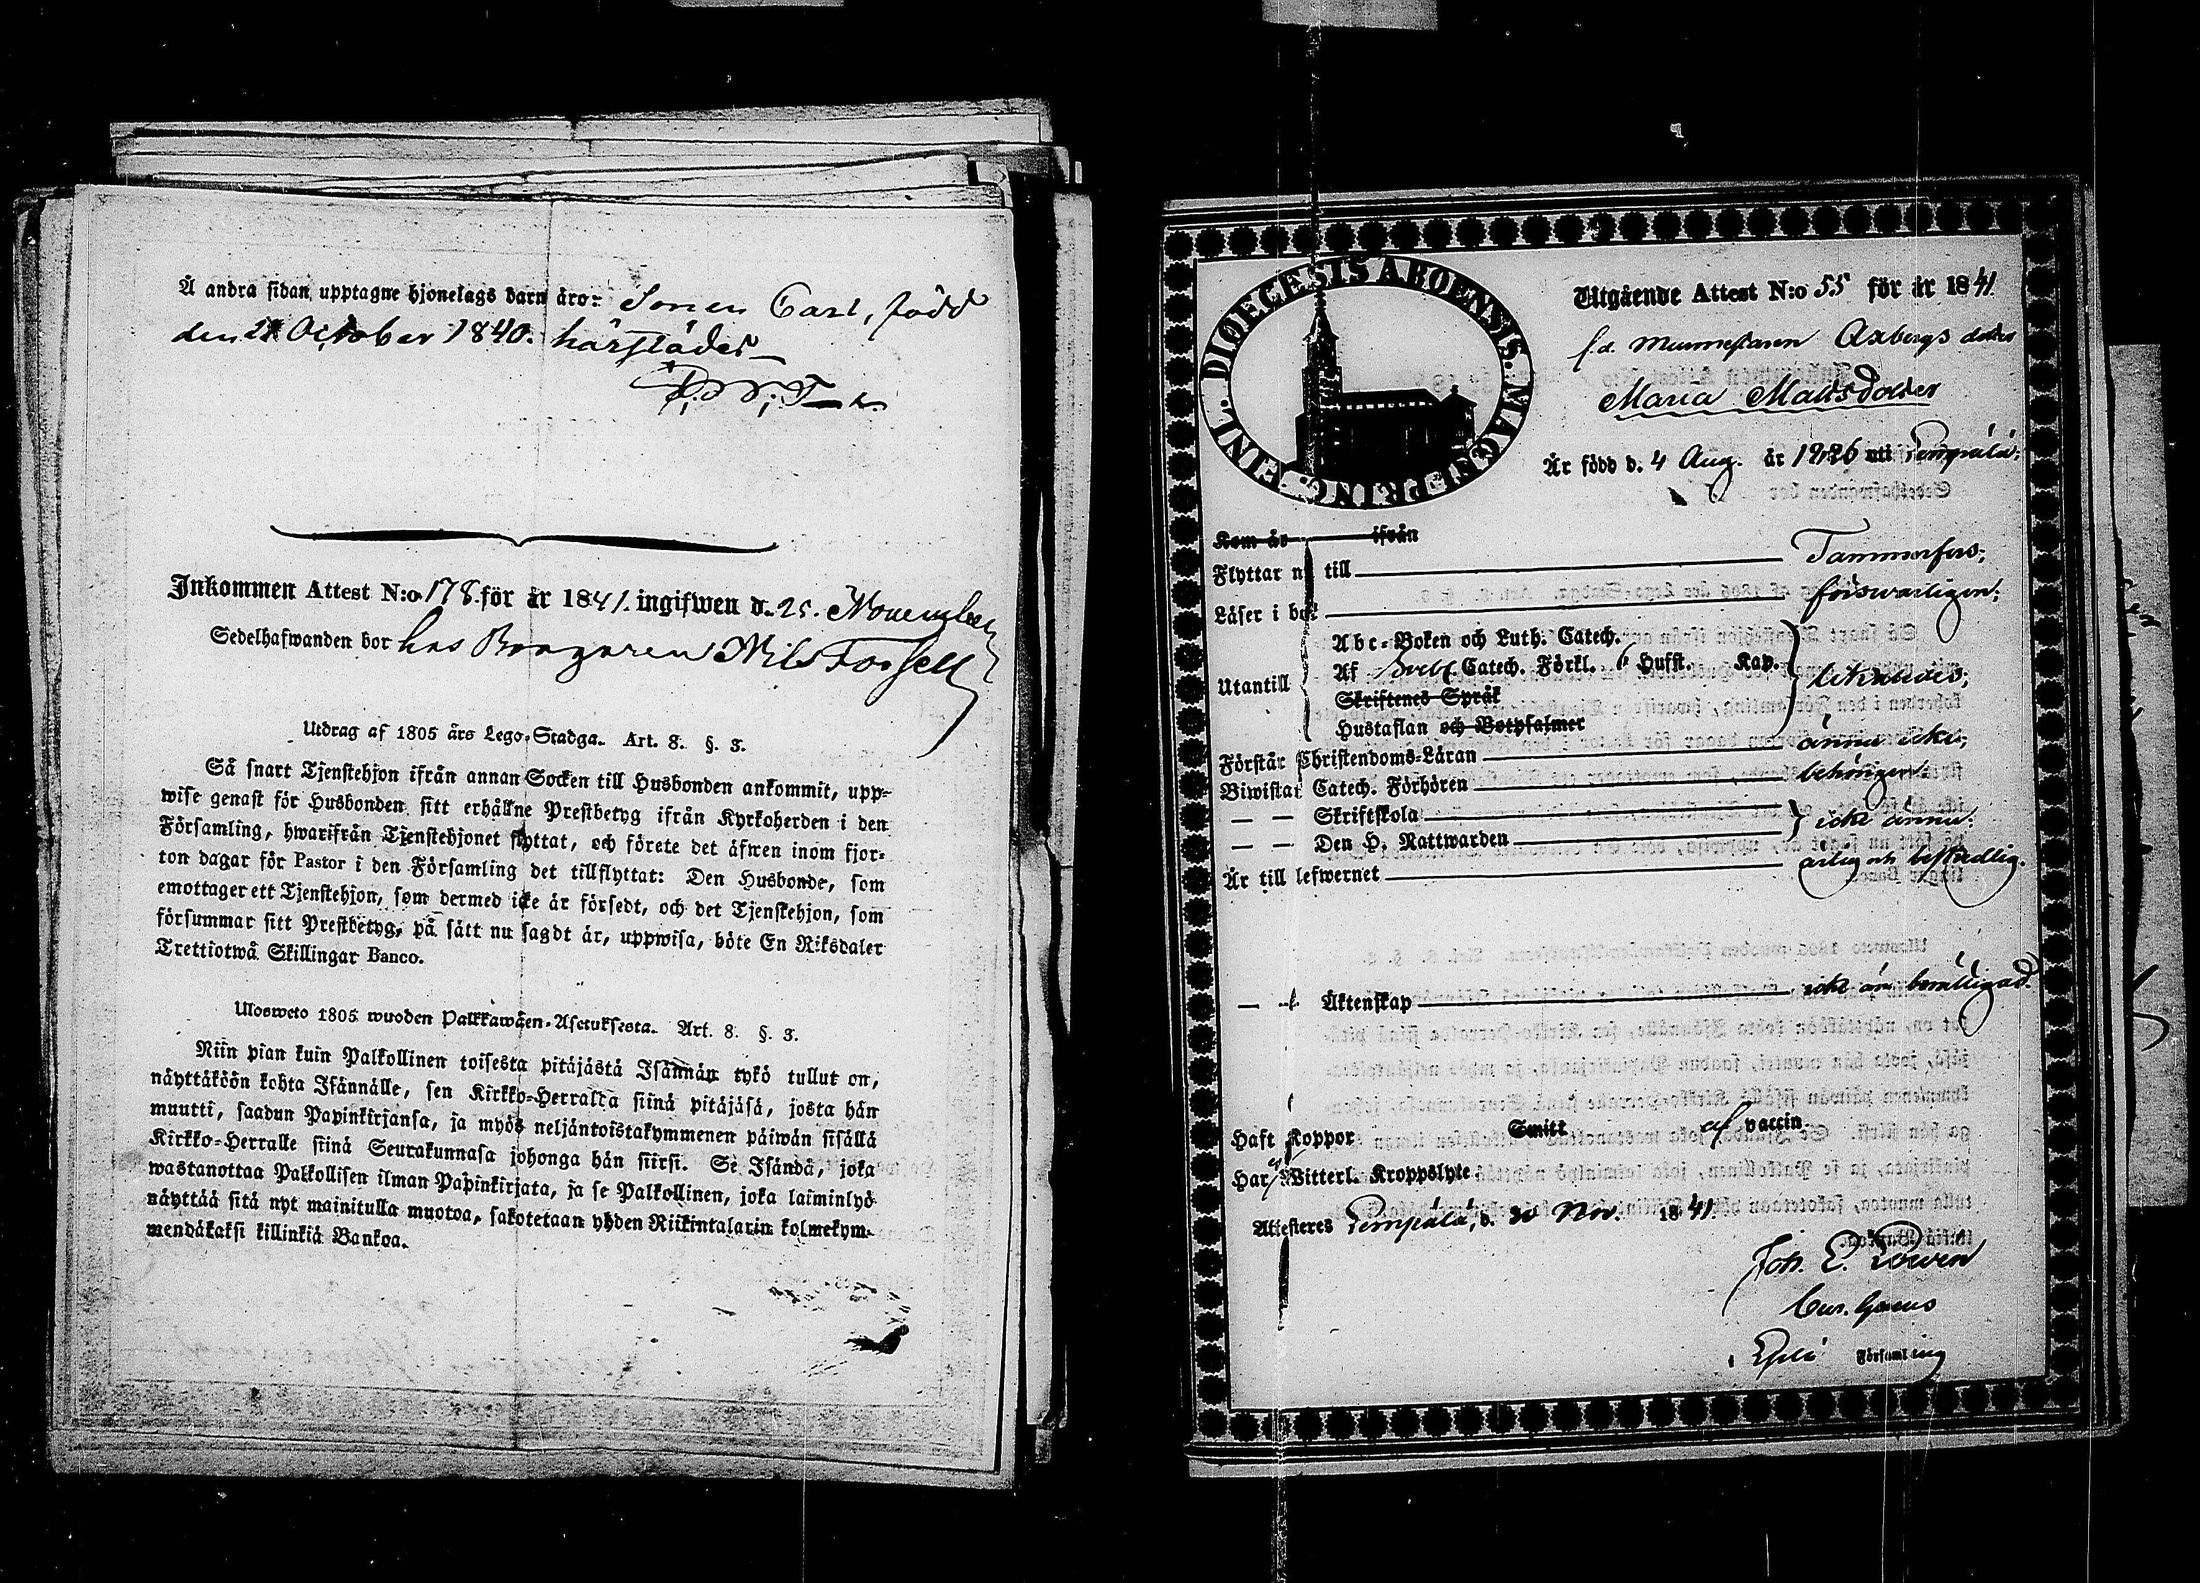 Å andra sidan upptagne hjonelags barn äro: Sonen Carl, född
den 21 October 1840. härstädes
Inkommen Attest N:o 178. för år 1841. ingifwen d. 25. November
Sedelhafwanden bor hos Borgaren Nils Forsell
Utdrag af 1805 års Lego-Stadga. Art. 8. §. 3.
Så snart Tjenstehjon ifrån annan Socken till Husbonden ankommit, upp-
wise genast för Husbonden sitt erhållne Prestbetyg ifrån Kyrkoherden i den
Församling, hwarifrån Tjenstehjonet flyttat, och förete det äfwen inom fjor-
ton dagar för Pastor i den Församling det tillflyttat: Den Husbonde, som
emottager ett Tjenstehjon, som dermed icke är försedt, och det Tjenstehjon, som
försummar sitt Prestbetyg, på sätt nu sagdt är, uppwisa, böte En Riksdaler
Trettiotwå Skillingar Banco.
Ulosweto 1805 wuoden Palkkawäen-Asetuksesta. Art. 8. §. 3.
Niin pian kuin Palkollinen toisesta pitäjästä Isännän tykö tullut on,
näyttäköön kohta Isännälle, sen Kirkko-Herralta siinä pitäjäsä, josta hän
muutti, saadun Papinkirjansa, ja myös neljäntoistakymmenen päiwän sisällä
Kirkko-Herralle siinä Seurakunnasa johonga hän siirsi. Se Isändä, joka
wastanottaa Palkollisen ilman Papinkirjata, ja se Palkollinen, joka laiminlyö
näyttää sitä nyt mainitulla muotoa, sakotetaan yhden Riikintalarin kolmekym-
mendäkaksi killinkiä Bankoa.
DIOECESIS ABOENSIS. MAGNI PRINC. FINL.
Utgående Attest N:o 55 för år 1841
f.d. Axbergs dotter
Maria Mattsdotter
Är född d. 4 Aug. år 1826 uti Lempälä;
Kom år ifrån
Flyttar nu till Tammerfors;
Läser i bok försvarligen;
Abc-Boken och Luth. Catech.
Utantill Af Sveb. Catech. Förkl. 6 Hufst. Kap. likaledes;
Skriftenes Språk
Hustaflan och Botpsalmer
Förstår Christendoms-Läran ännu icke;
Biwistat Catech. Förhören behörigen.
— — Skriftskola
— — Den H. Nattwarden icke ännu.
Är till lefwernet ärlig och beskedlig.
— — Äktenskap icke än berättigad.
Haft Koppor Smitt af vaccin
Har Witterl. Kroppslyte
Attesteres Lempälä, d. 20 Nov. 1841.
Joh. E.
i Församling